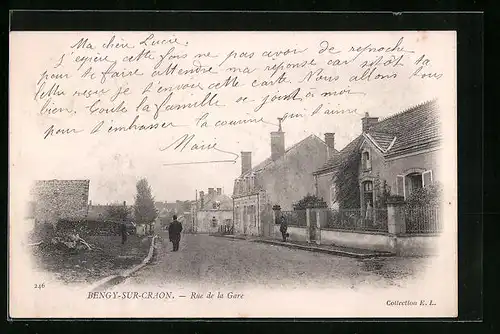 Ma chère Lucie.
J'espère cette fois ne pas avoir de reproche
pour te faire attendre ma réponse car sitôt ta
lettre reçue je t'envoie cette carte. Nous allons tous
bien. Toute la famille se joint à moi
pour t'embrasser Ta cousine qui t'aime
Marie
246
BENGY-SUR-CRAON. — Rue de la Gare
Collection E. L.